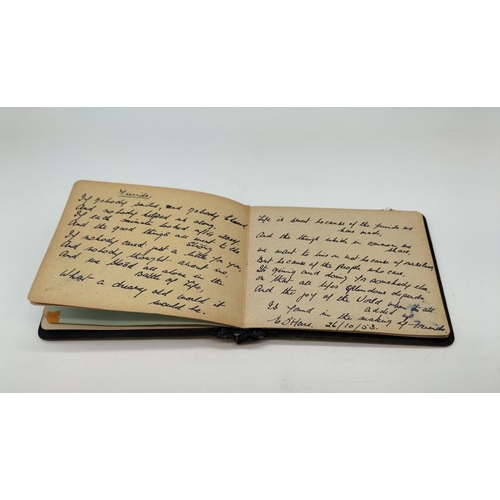 Friends.
If nobody smiled, and nobody cheered
And nobody helped us along,
If each minute looked after itself
And the good things all went to the
strong
If nobody cared just a little for you,
And nobody thought about me
And we stood all alone in the
battle of life,
What a dreary old world it
would be.
Life is sweet because of the friends we
have made,
And the things which in common we
share,
we want to live on not because of ourselves,
But because of the people who care,
It's giving and doing for somebody else,
on that all life's splendour depends,
And the joy of the World when it's all
added up
Is found in the making of Friends
E O'Hare. 26/10/53.